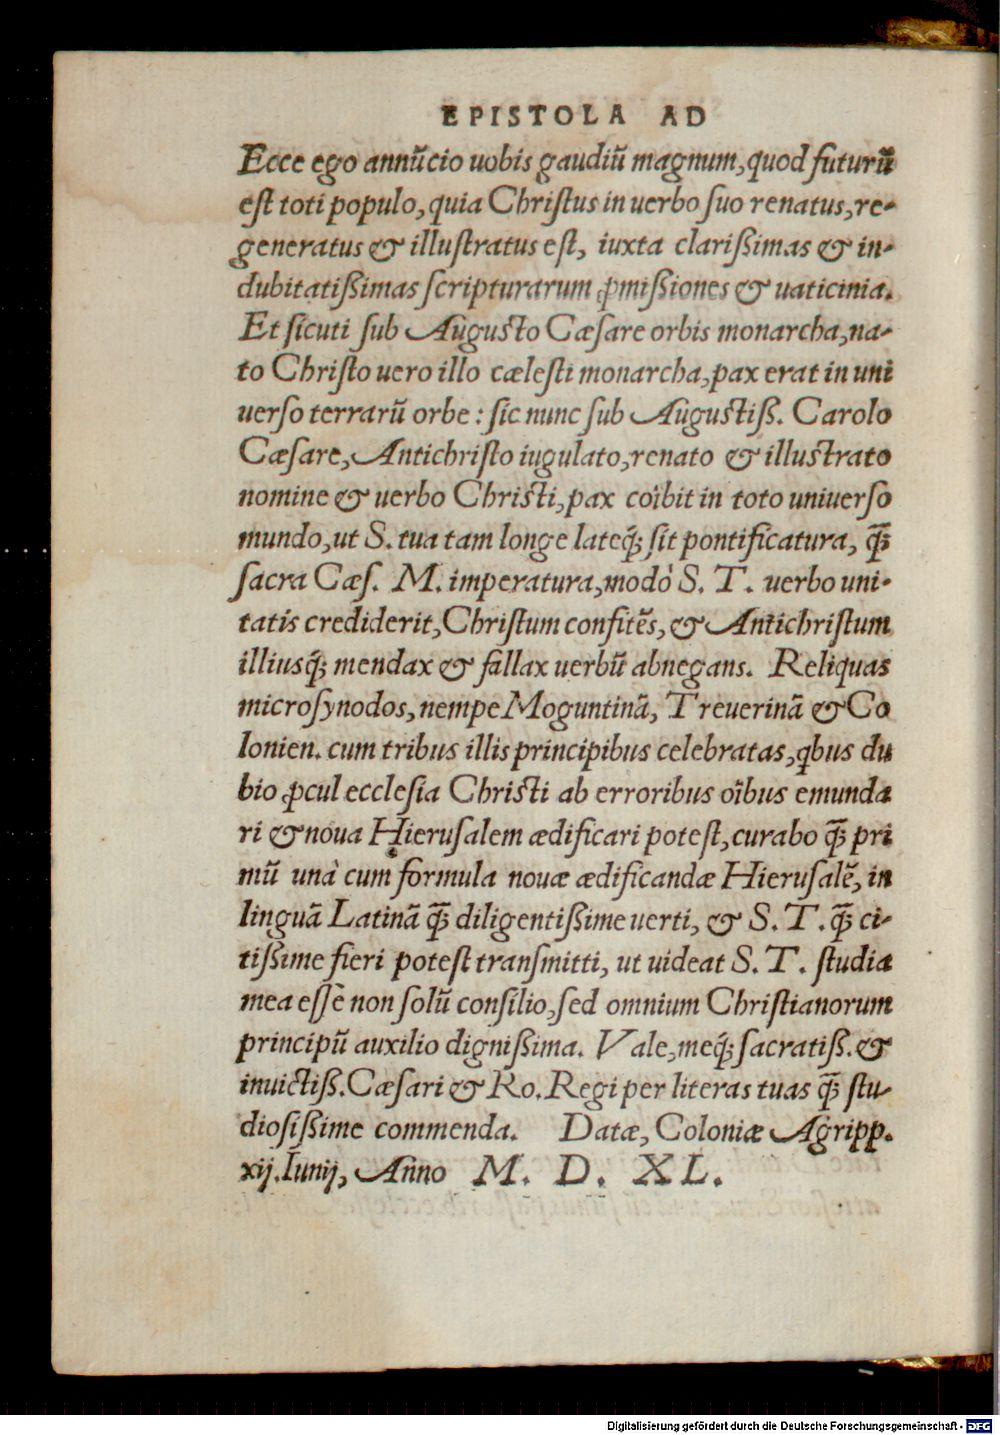 EPISTOLA AD
Ecce ego annũcio uobis gaudiũ magnum, quod futurũ
est toti populo, quia Christus in uerbo suo renatus, re-
generatus & illustratus est, iuxta clarißimas & in-
dubitatißimas scripturarum ꝓmißiones & uaticinia.
Et sicuti sub Augusto Cæsare orbis monarcha, na-
to Christo uero illo cælesti monarcha, pax erat in uni
uerso terrarũ orbe: sic nunc sub Augustiß. Carolo
Cæsare, Antichristo iugulato, renato & illustrato
nomine & uerbo Christi, pax coĩbit in toto uniuerso
mundo, ut S. tua tam longe lateq́; sit pontificatura, q̃;
sacra Cæs. M. imperatura, modò S. T. uerbo uni-
tatis crediderit, Christum confitẽs, & Antichristum
illiusq́; mendax & fallax uerbũ abnegans. Reliquas
microsynodos, nempe Moguntinã, Treuerinã & Co
lonien. cum tribus illis principibus celebratas, qbus du
bio ꝓcul ecclesia Christi ab erroribus oĩbus emunda
ri & noua Hierusalem ædificari potest, curabo q̃; pri
mũ unà cum formula nouæ ædificandæ Hierusalẽ, in
linguã Latinã q̃; diligentißime uerti, & S. T. q̃; ci-
tißime fieri potest transmitti, ut uideat S. T. studia
mea essè non solũ consilio, sed omnium Christianorum
principũ auxilio dignißima. Vale, meq́; sacratiß. &
inuictiß. Cæsari & Ro. Regi per literas tuas q̃; stu-
diosißime commenda. Datæ, Coloniæ Agripp.
xij. Iunij, Anno M. D. XL.
Digitalisierung gefördert durch die Deutsche Forschungsgemeinschaft - DFG